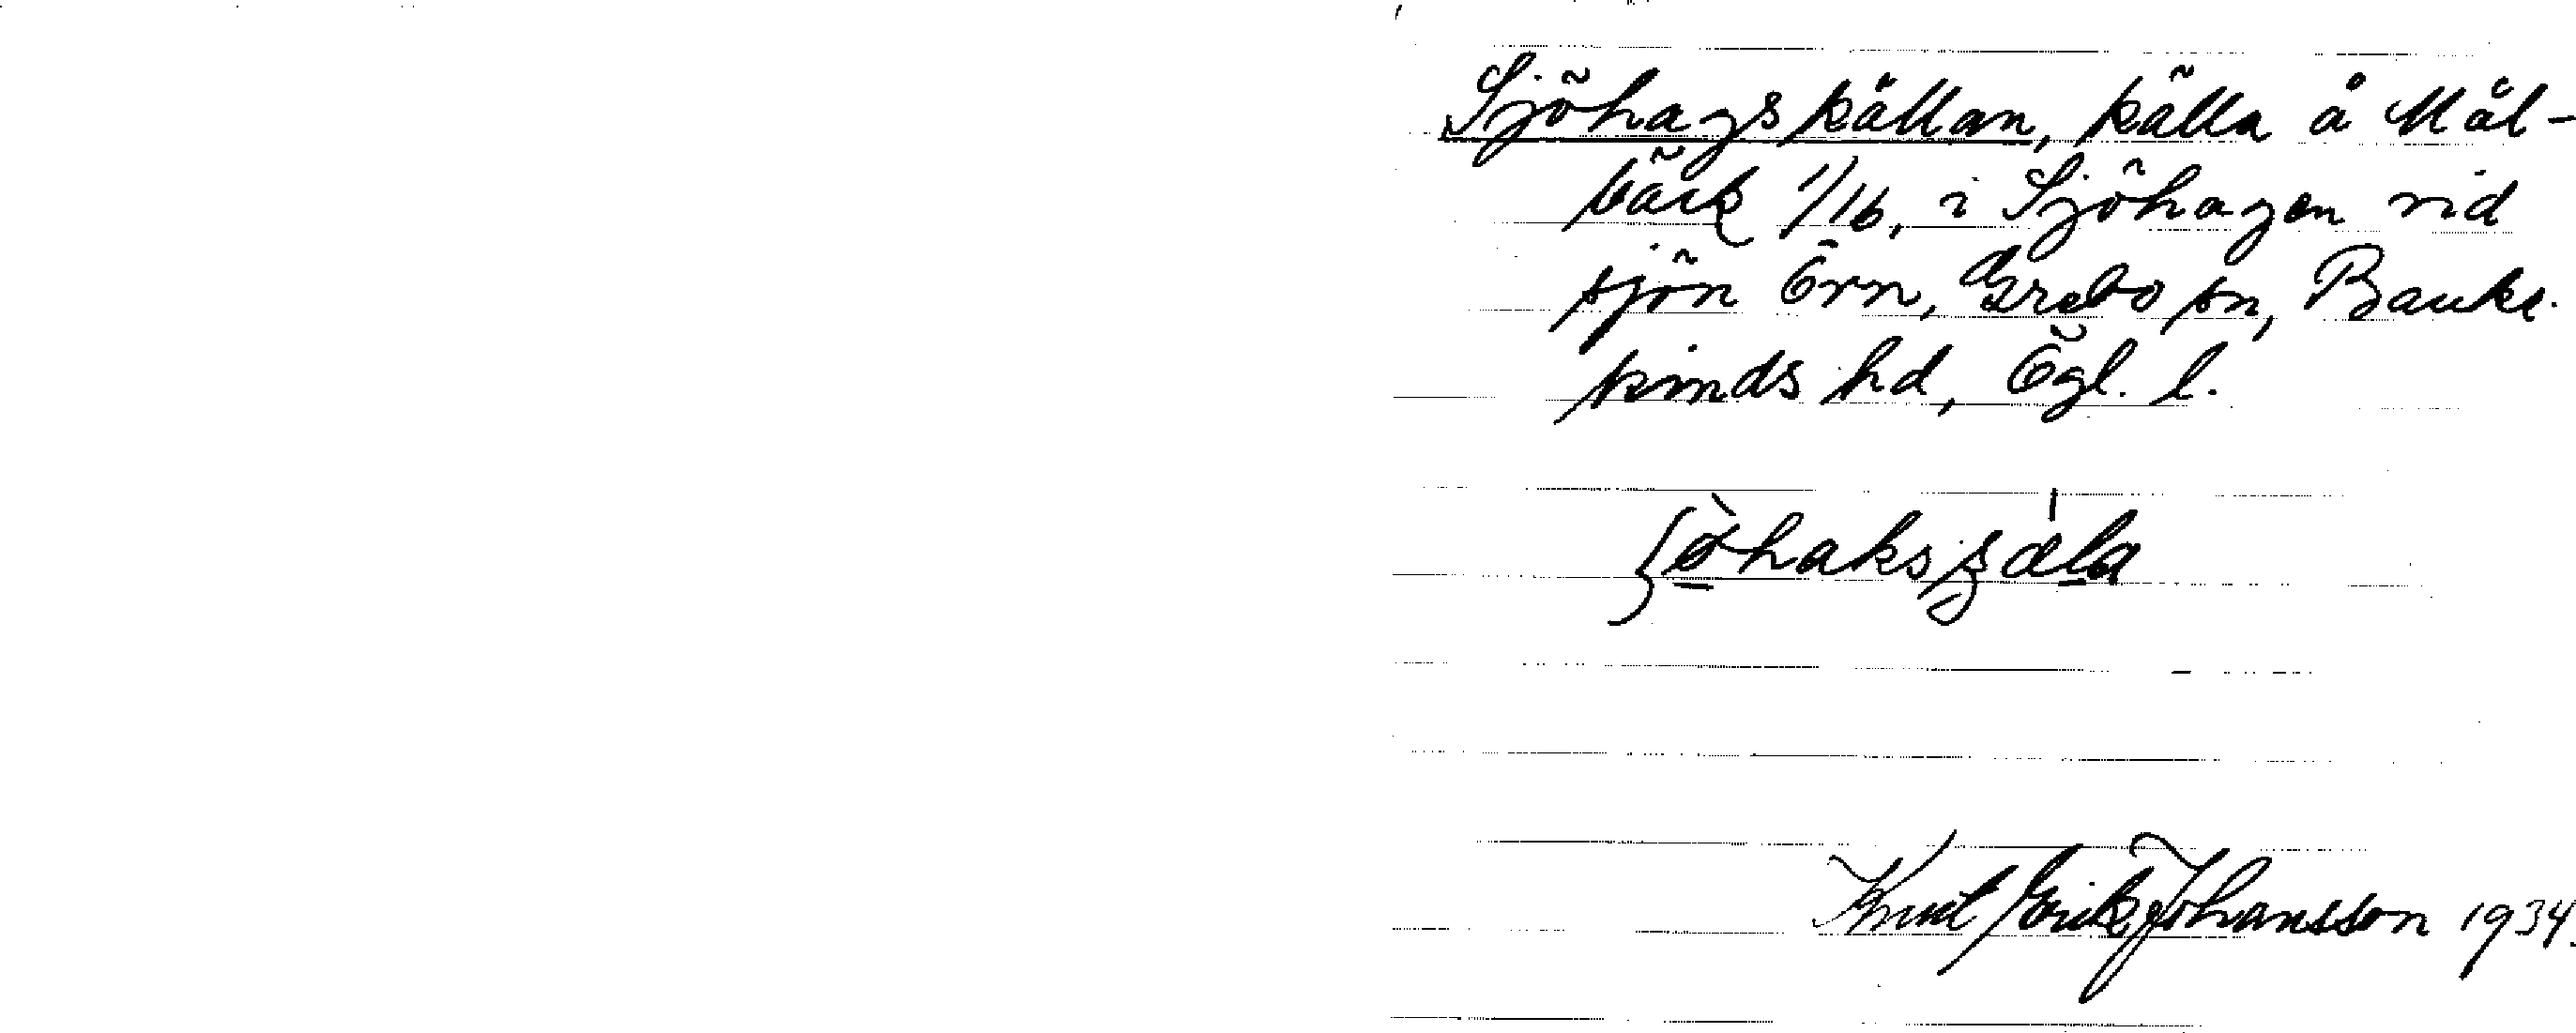 Sjöhagskällan, källa å Mål-
bäck 1/16, i Sjöhagen vid
sjön Örn, Grebo sn, Banke-
kinds hd, Ögl. l.
Knut Erik Johansson 1934.